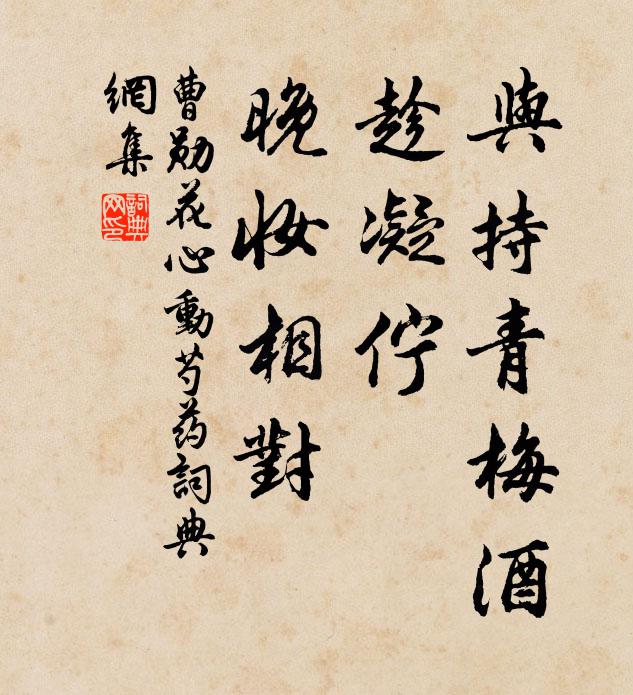 與持青梅酒
趁凝佇
晚妝相對
曹勛花心動芍药詞典
網集
詞典
网印